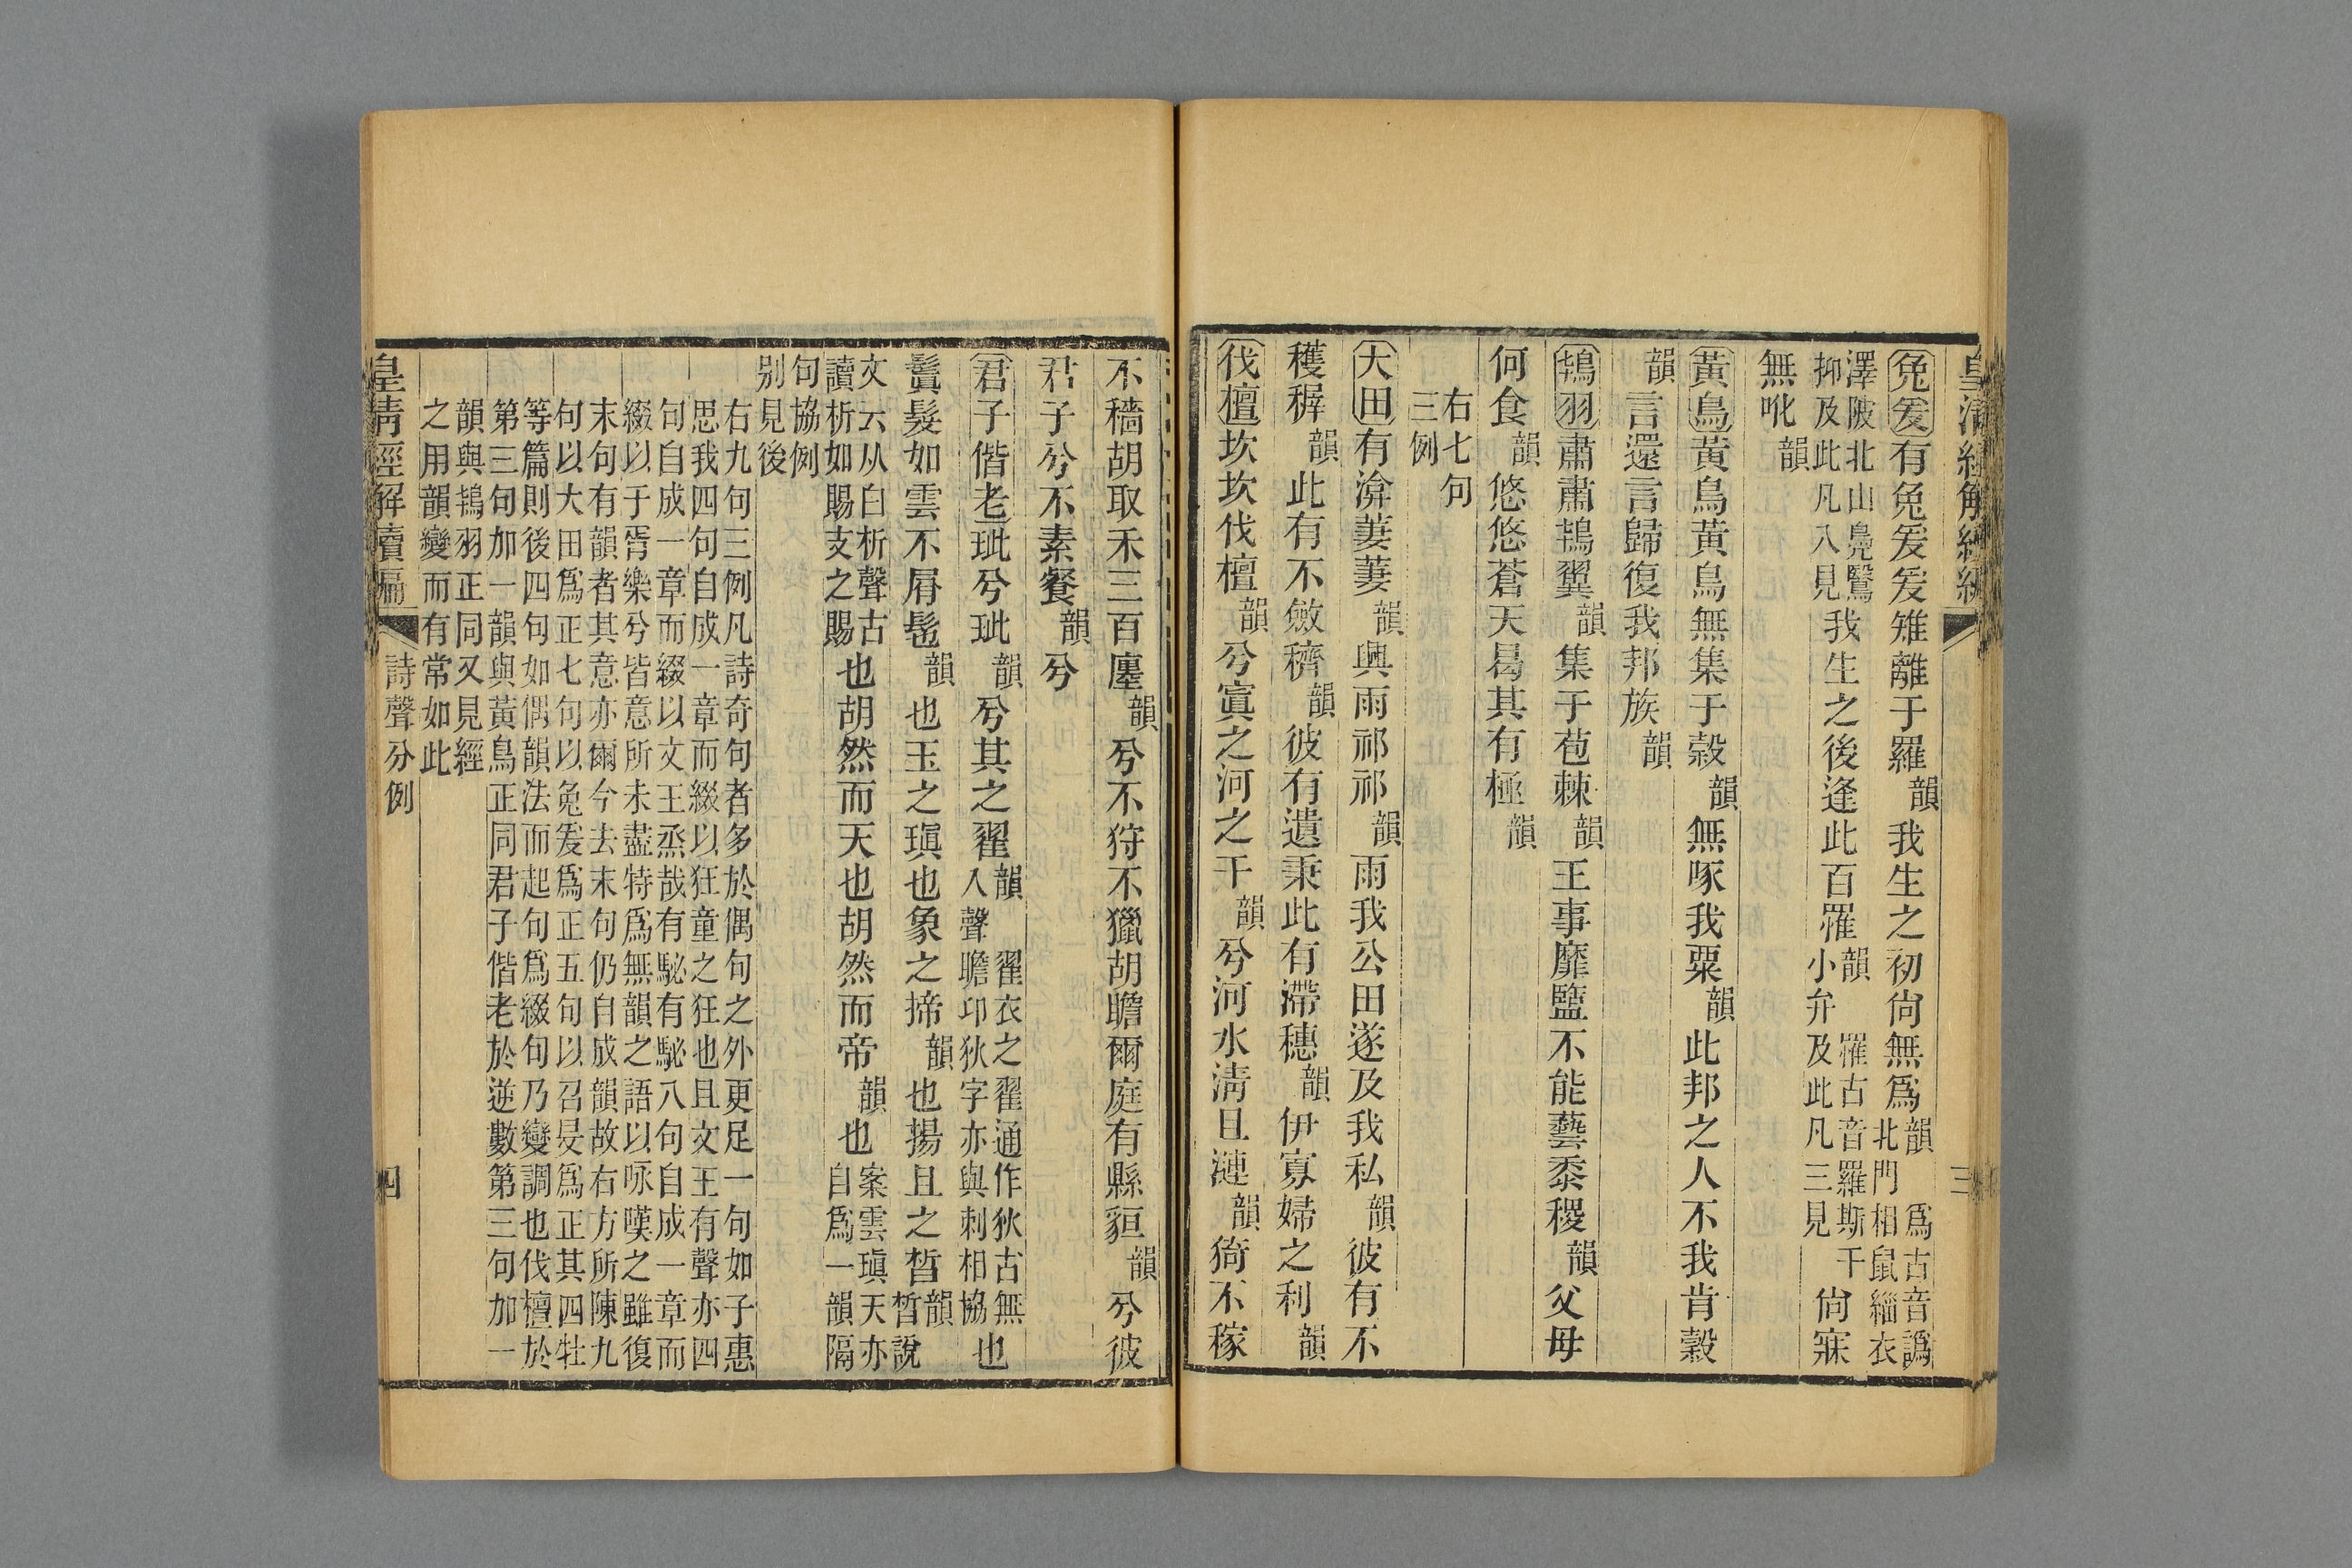 皇清經解續編
三
兔爰有兔爰爰雉離于羅韻我生之初尙無爲韻爲古音譌北門相鼠緇衣
澤陂北山鳧鷖抑及此凡八見我生之後逢此百罹韻罹古音羅斯干小弁及此凡三見尙寐
無吪韻
黃鳥黃鳥黃鳥無集于榖韻無啄我粟韻此邦之人不我肯榖
韻言還言歸復我邦族韻
鴇羽肅肅鴇翼韻集于苞棘韻王事靡盬不能藝黍稷韻父母
何食韻悠悠蒼天曷其有極韻
右七句三例
大田有渰萋萋韻興雨祁祁韻雨我公田遂及我私韻彼有不
穫穉韻此有不斂穧韻彼有遺秉此有滯穗韻伊寡婦之利韻
伐檀坎坎伐檀韻兮寘之河之干韻兮河水淸且漣韻猗不稼
不穡胡取禾三百廛韻兮不狩不獵胡瞻爾庭有縣貆韻兮彼
君子兮不素餐韻兮
君子偕老玼兮玼韻兮其之翟韻翟衣之翟通作狄古無入聲瞻卬狄字亦與刺相協也
鬒髮如雲不屑髢韻也玉之瑱也象之揥韻也揚且之晳韻晳說
文云从白析聲古讀析如賜支之賜也胡然而天也胡然而帝韻也案雲瑱天亦自爲一韻隔
句協例別見後
右九句三例凡詩奇句者多於偶句之外更足一句如子惠
思我四句自成一章而綴以狂童之狂也且文王有聲亦四
句自成一章而綴以文王烝哉有駜有駜八句自成一章而
綴以于胥樂兮皆意所未盡特爲無韻之語以咏嘆之雖復
末句有韻者其意亦爾今去末句仍自成韻故右方所陳九
句以大田爲正七句以兔爰爲正五句以召旻爲正其四牡
等篇則後四句如偶韻法而起句爲綴句乃變調也伐檀於
第三句加一韻與黃鳥正同君子偕老於逆數第三句加一
韻與鴇羽正同又見經
之用韻變而有常如此
皇清經解續編
詩聲分例
四